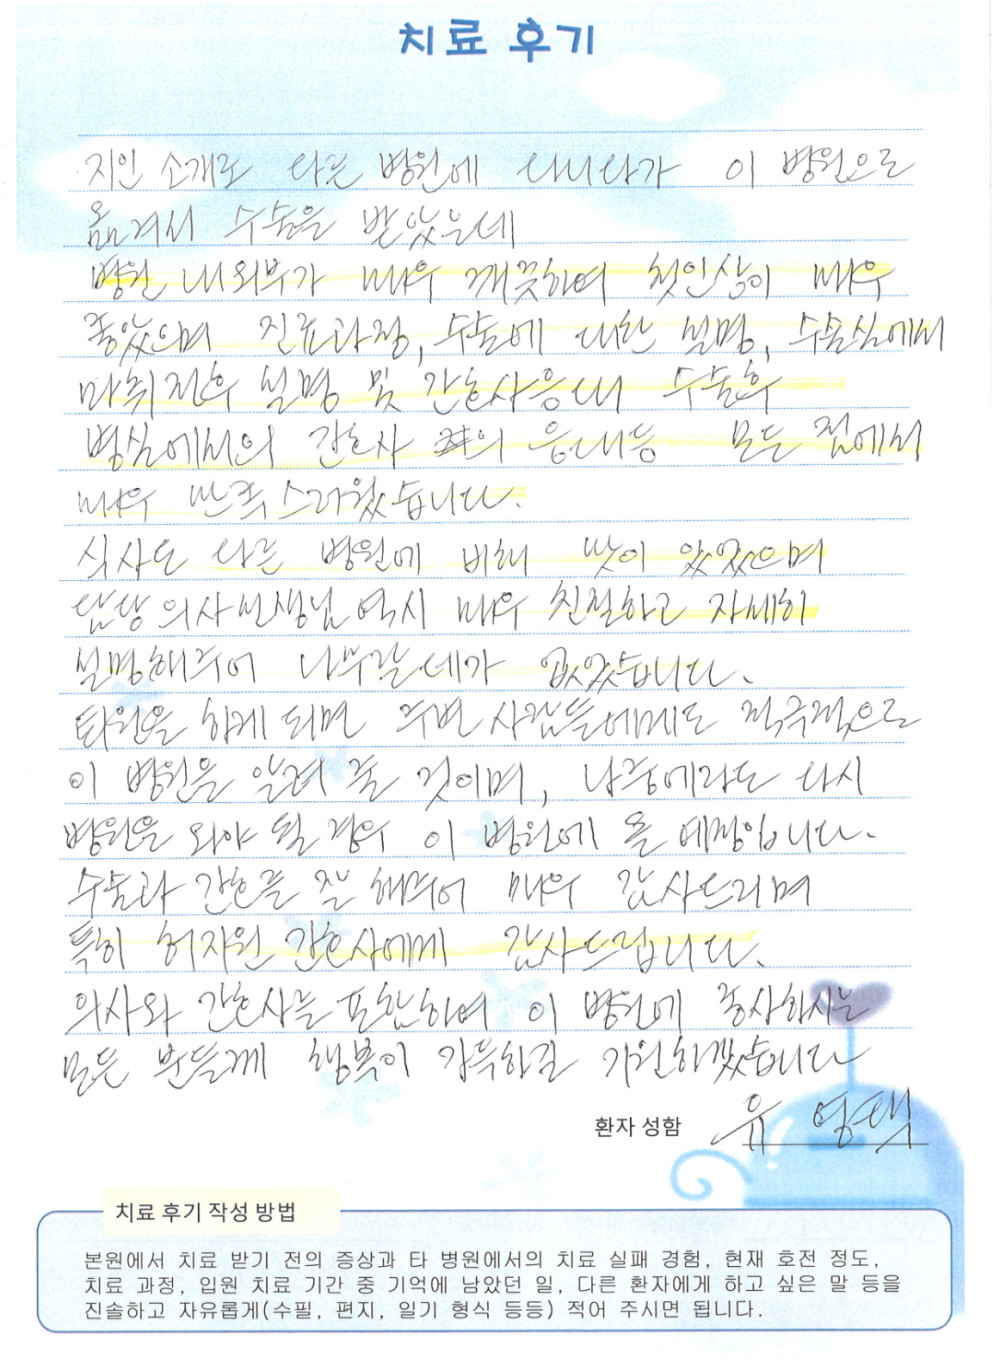 치료 후기
지인 소개로 다른 병원에 다니다가 이 병원으로
옮겨서 수술을 받았는데
병원 내외부가 매우 깨끗하며 첫인상이 매우
좋았으며 진료과정, 수술에 대한 설명, 수술실에서
마취 전후 설명 및 간호사응대 수술후
병실에서의 간호사 의 응대등 모든 점에서
매우 만족스러웠습니다.
식사도 다른 병원에 비해 맛이 있었으며
담당 의사선생님 역시 매우 친절하고 자세히
설명해주어 나무랄데가 없었습니다.
퇴원을 하게 되면 주변 사람들에게도 적극적으로
이 병원을 알려 줄 것이며, 나중에라도 다시
병원을 와야 될 경우 이 병원에 올 예정입니다.
수술과 간호를 잘 해주어 매우 감사드리며
특히 허지원 간호사에게 감사드립니다.
의사와 간호사를 포함하여 이 병원에 종사하시는
모든 분들께 행복이 가득하길 기원하겠습니다
환자 성함 유 영택
치료 후기 작성 방법
본원에서 치료 받기 전의 증상과 타 병원에서의 치료 실패 경험, 현재 호전 정도,
치료 과정, 입원 치료 기간 중 기억에 남았던 일, 다른 환자에게 하고 싶은 말 등을
진솔하고 자유롭게(수필, 편지, 일기 형식 등등) 적어 주시면 됩니다.